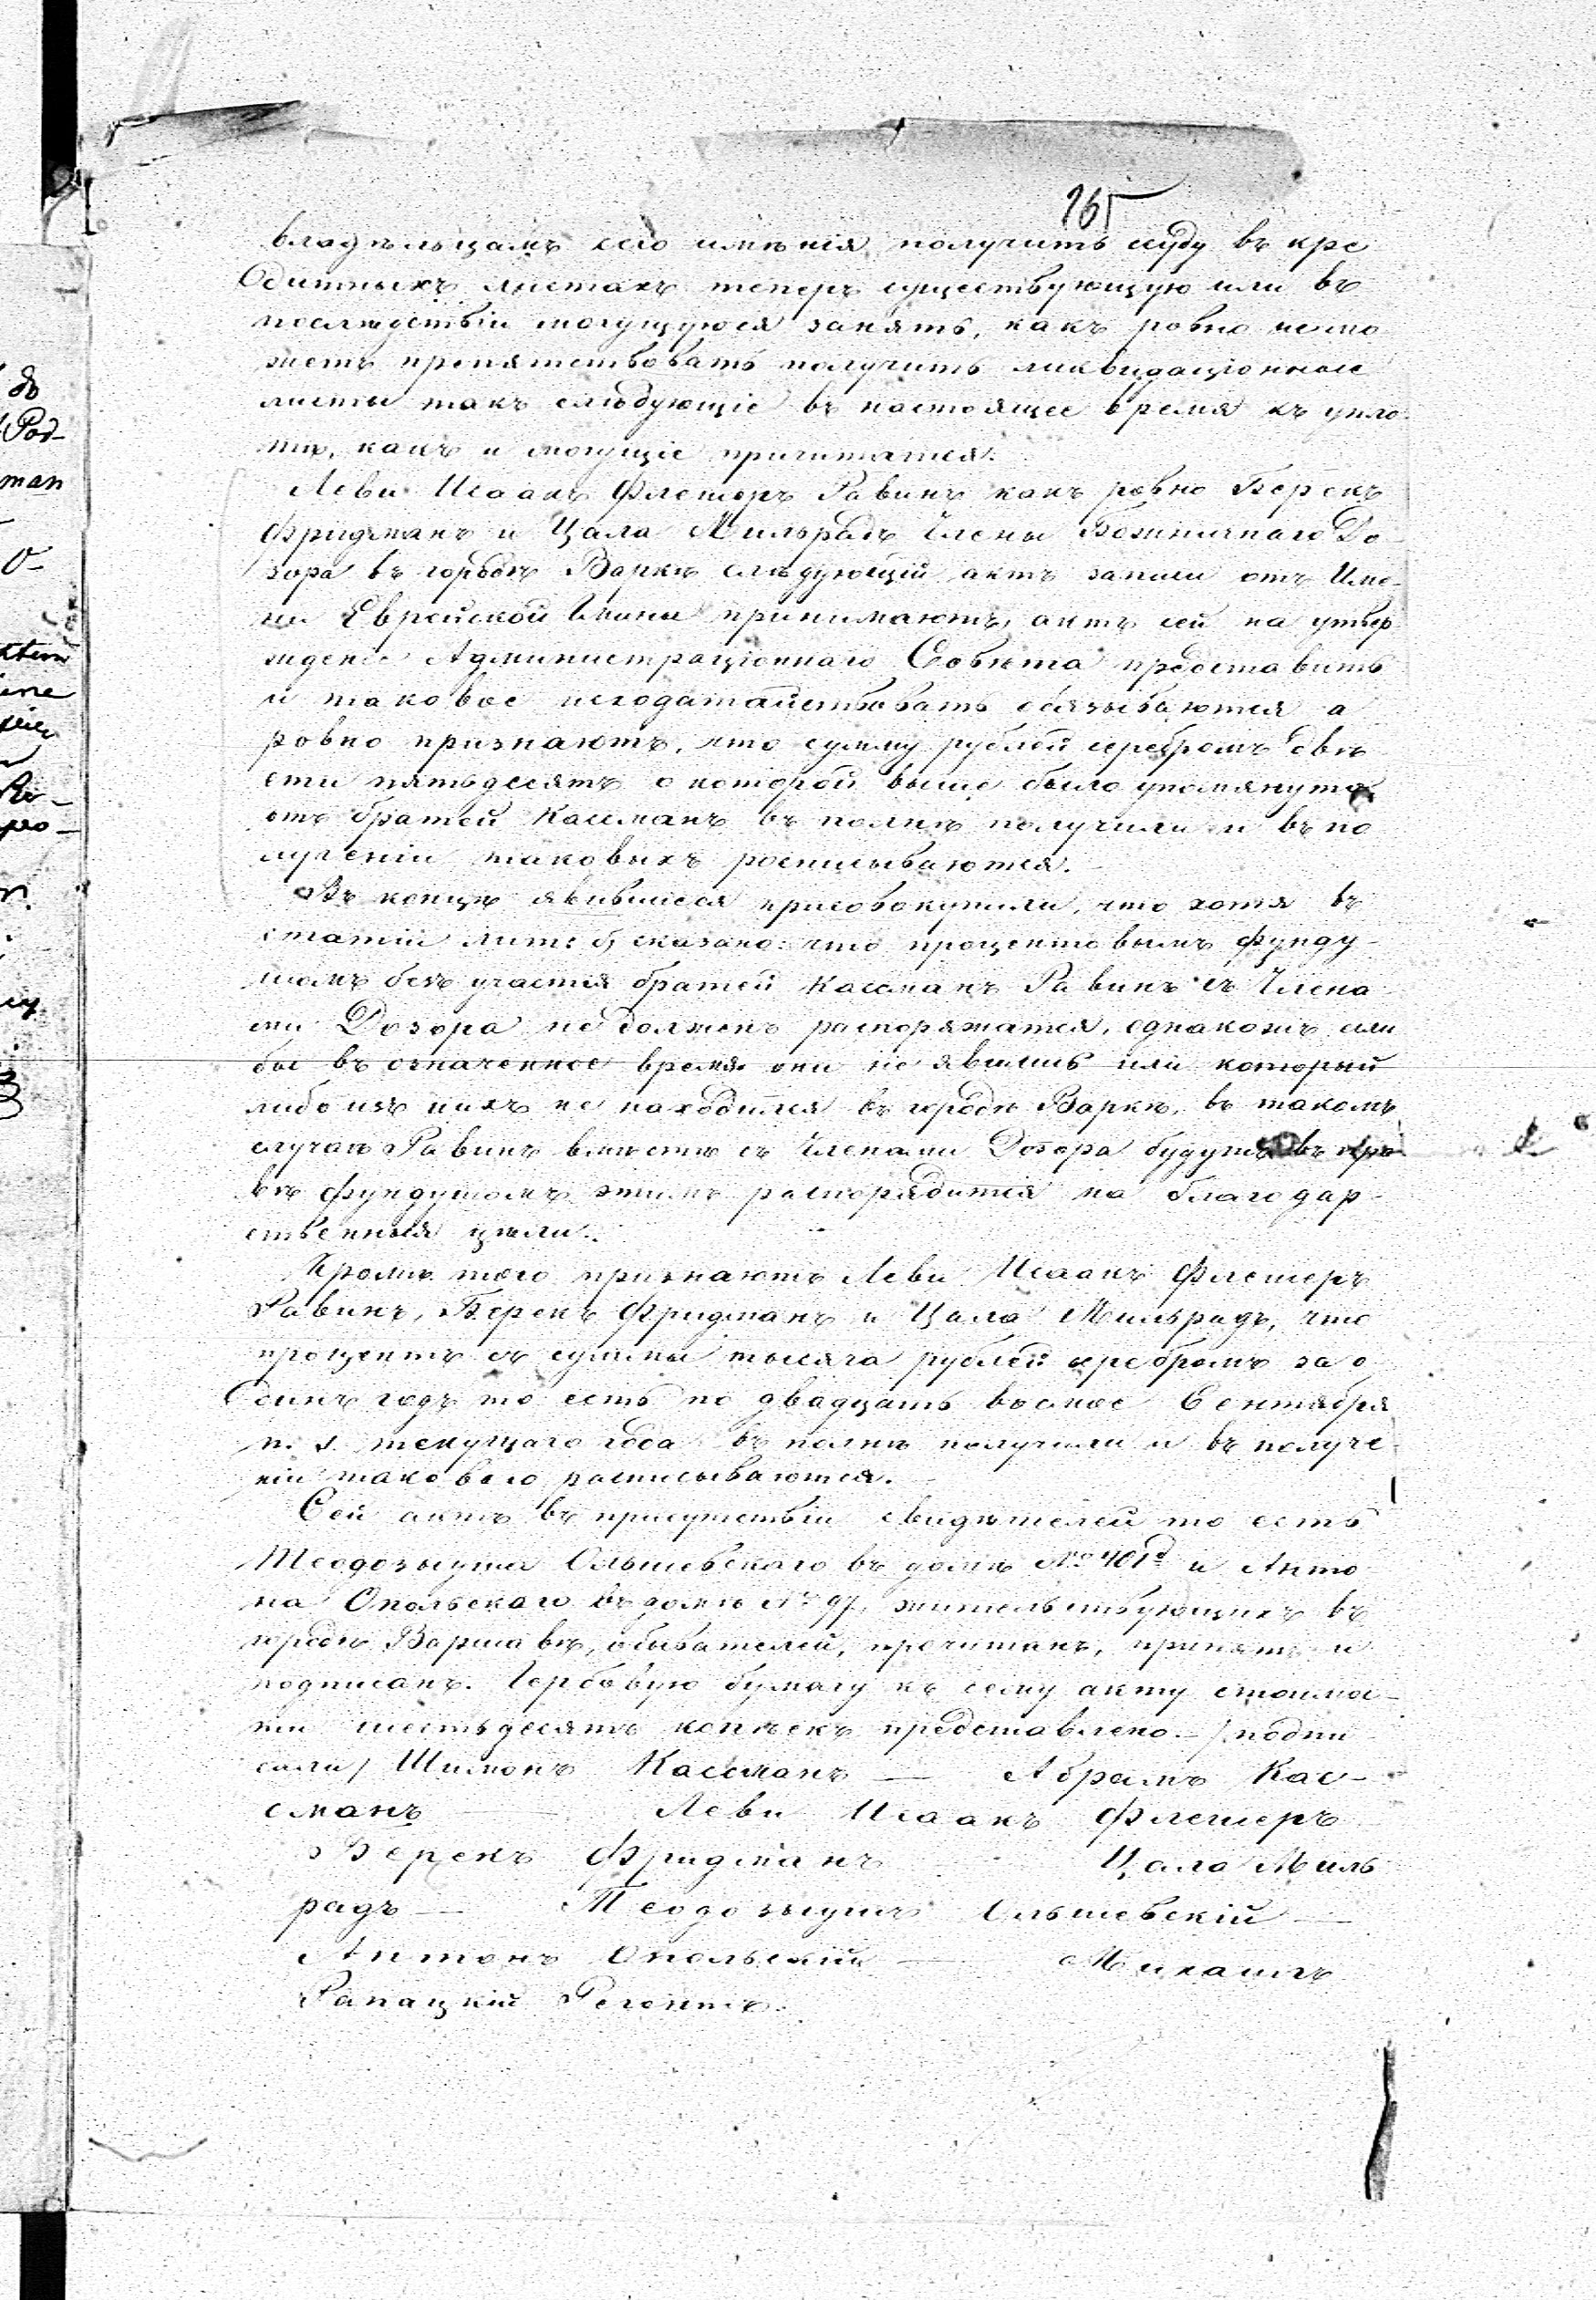 165
владѣльцамъ сего имѣнія получить ссуду въ кре
дитныхъ листахъ теперь существующую или въ
послѣдствіи могущуюся занять, какъ ровно немо
жетъ препятствовать получить ликвидаціонные
листы такъ слѣдующіе въ настоящее время къ упла
тѣ, какъ и могущіе причитатся.
Леви Исаакъ Флешеръ Равинъ какъ ровно Берекъ
Фридманъ и Цала Мильрадъ Члены Божничнаго До
зора въ городѣ Варкѣ слѣдующій актъ записи отъ Име
ни Еврейской Гмины принимаютъ, актъ сей на утвер
жденіе Администраціоннаго Совѣта предоставить
и таковое исходатайствовать обязываются а
ровно признаютъ, что сумму рублей серебромъ двѣ
сти пятьдесятъ о которой выше было упомянуто
отъ братей Кассманъ въ полнѣ получили и въ по
лученіи таковыхъ росписываются.
Въ концѣ явившіеся присовокупили, что хотя въ
статіи лит: б, сказано: что процентовымъ фунду
шомъ безъ участія братей Кассманъ Равинъ съ Члена
ми Дозора не долженъ распоряжатся, однакожъ если
бы въ означенное время они не явились или который
либо изъ нихъ не находился въ городѣ Варкѣ, въ такомъ
случаѣ Равинъ вмѣстѣ съ Членами Дозора будутъ въ пра
вѣ фундушомъ этимъ распорядится на благодар
ственныя цѣли.
Кромѣ того признаютъ Леви Исаакъ Флешеръ
Равинъ, Берекъ Фридманъ и Цала Мильрадъ, что
процентъ съ суммы тысяча рублей серебромъ за о
динъ годъ то есть по двадцать восмое Сентября
н. с. текущаго года въ полнѣ получили и въ получе
ніи таковаго расписываются.
Сей актъ въ присутствіи свидѣтелей то есть
Теодозыуша Ольшевскаго въ домѣ № 401 и Анто
на Опольскаго въ домѣ № 97, жительствующихъ въ
городѣ Варшавѣ, обывателей, прочитанъ, принятъ и
подписанъ. Гербовую бумагу къ сему акту стоимос
ти шестьдесятъ копѣекъ представлено. – /подпи
сали/ Шимонъ Кассманъ — Абрамъ Кас-
сманъ — Леви Исаакъ Флешеръ
Берекъ Фридманъ — Цала Миль
радъ — Теодозыушъ Ольшевскій —
Антонъ Опольскій — Михаилъ
Рапацкій Регентъ.